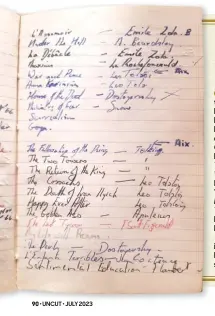 L'Assommoir — Emile Zola.
Under the Hill — A. Beardsley
La Débâcle — Emile Zola
Maxims — La Rochefoucauld
War and Peace — Leo Tolstoy
Anna Karenina — Leo Tolstoy
House of the Dead — Dostoyevsky
Ministry of Fear — Greene
Surrealism
Goya.
The Fellowship of the Ring — Tolkien
The Two Towers — "
The Return of the King — "
The Cossacks — Leo Tolstoy
The Death of Ivan Ilyich — Leo Tolstoy
Happy Ever After — Leo Tolstoy
The Golden Ass — Apuleius
The Last Tycoon
The Devils — Dostoyevsky
L'Enfants Terribles — Cocteau
Sentimental Education — Flaubert
90 • UNCUT • JULY 2023